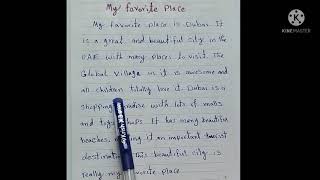 My favorite Place
My favorite place is Dubai. It
is a great and beautiful city in the
UAE with many places to visit. The
Global Village in it is awesome and
all children totally love it. Dubai is a
shopping paradise with lots of malls
and top shops. It has many beautiful
beaches, making it an important tourist
destination. This beautiful city is
really my favorite place
KINEMASTER